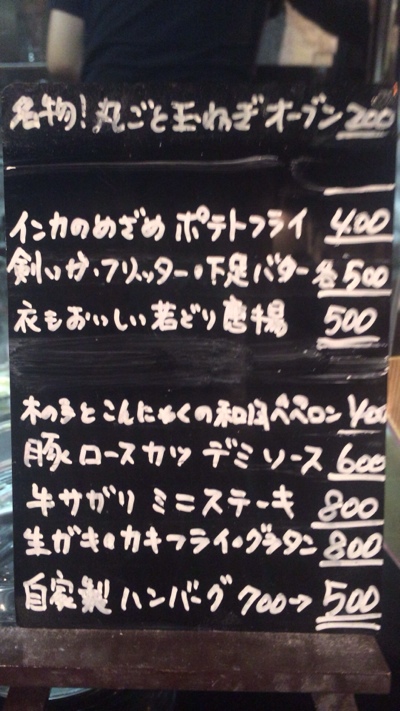 名物!丸ごと玉ねぎオーブン 200
インカのめざめ ポテトフライ 400
剣いか・フリッター・下足バター 各500
衣もおいしい若どり唐揚 500
木の子とこんにゃくの和風ペペロン 400
豚ロースカツ デミソース 600
牛サガリ ミニステーキ 800
生ガキ・カキフライ・グラタン 800
自家製ハンバーグ 700→500